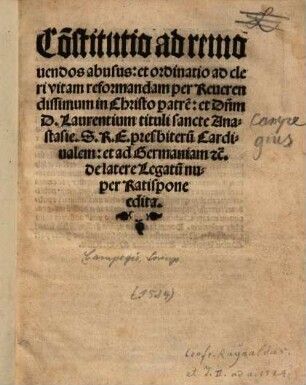 Cōstitutio ad remo
uendos abusus: et ordinatio ad cle
ri vitam reformandam per Reueren
dissimum in Christo patrē: et Dn̄m
D. Laurentium tituli sancte Ana-
stasie. S. R. E. presbiterū Cardi-
nalem: et ad Germaniam ⁊c̄.
de latere Legatū nu-
per Ratispone
edita.
Campe
gius
Campegio, Lorenzo
(1524)
Confr. Raynaldus